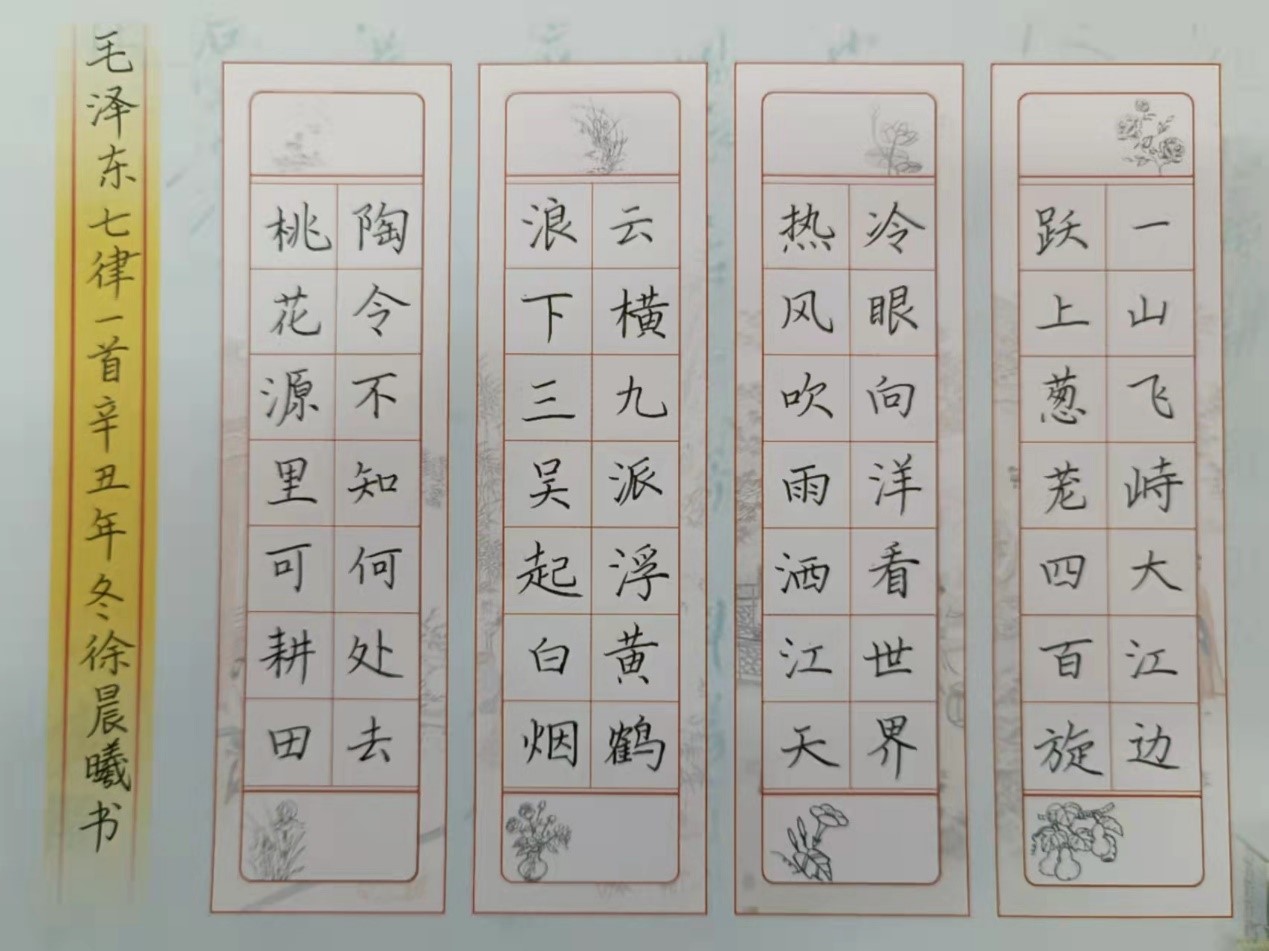 一山飞峙大江边
跃上葱茏四百旋
冷眼向洋看世界
热风吹雨洒江天
云横九派浮黄鹤
浪下三吴起白烟
陶令不知何处去
桃花源里可耕田
毛泽东七律一首辛丑年冬徐晨曦书